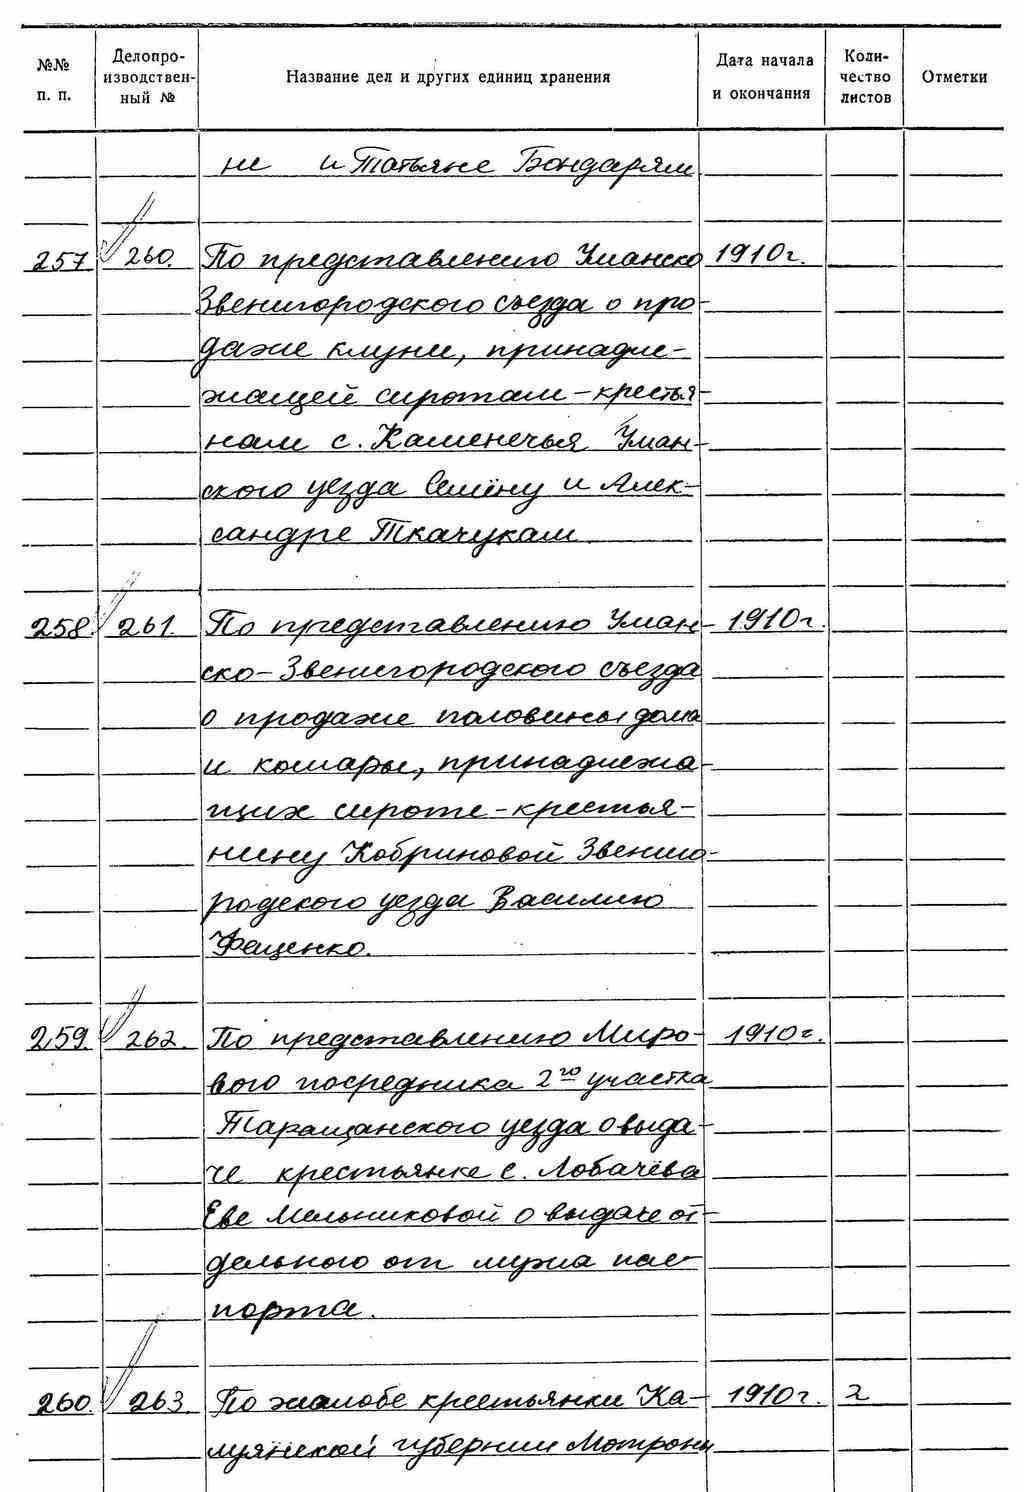 №№ п. п. Делопроизводственный № Название дел и других единиц хранения Дата начала и окончания Количество листов Отметки
не и Татьяне Бондарям
257 260. По представлению Уманско 1910г.
Звенигородского съезда о про-
даже клуни, принадле-
жащей сиротам-крестья-
нам с. Каменечья Уман-
ского уезда Семёну и Алек-
сандре Ткачукам
258 261. По представлению Уман- 1910г.
ско-Звенигородского съезда
о продаже половины дома
и комары, принадлежа-
щих сироте-крестья-
нину Кобриновой Звениго-
родского уезда Василию
Фещенко.
259. 262. По представлению Миро- 1910г.
вого посредника 2го участка
Таращанского уезда о выда-
че крестьянке с. Лобачёва
Еве Мельниковой о выдаче от-
дельного от мужа пас-
порта.
260. 263. По жалобе крестьянки Ка- 1910г. 2
губернии Мотроны